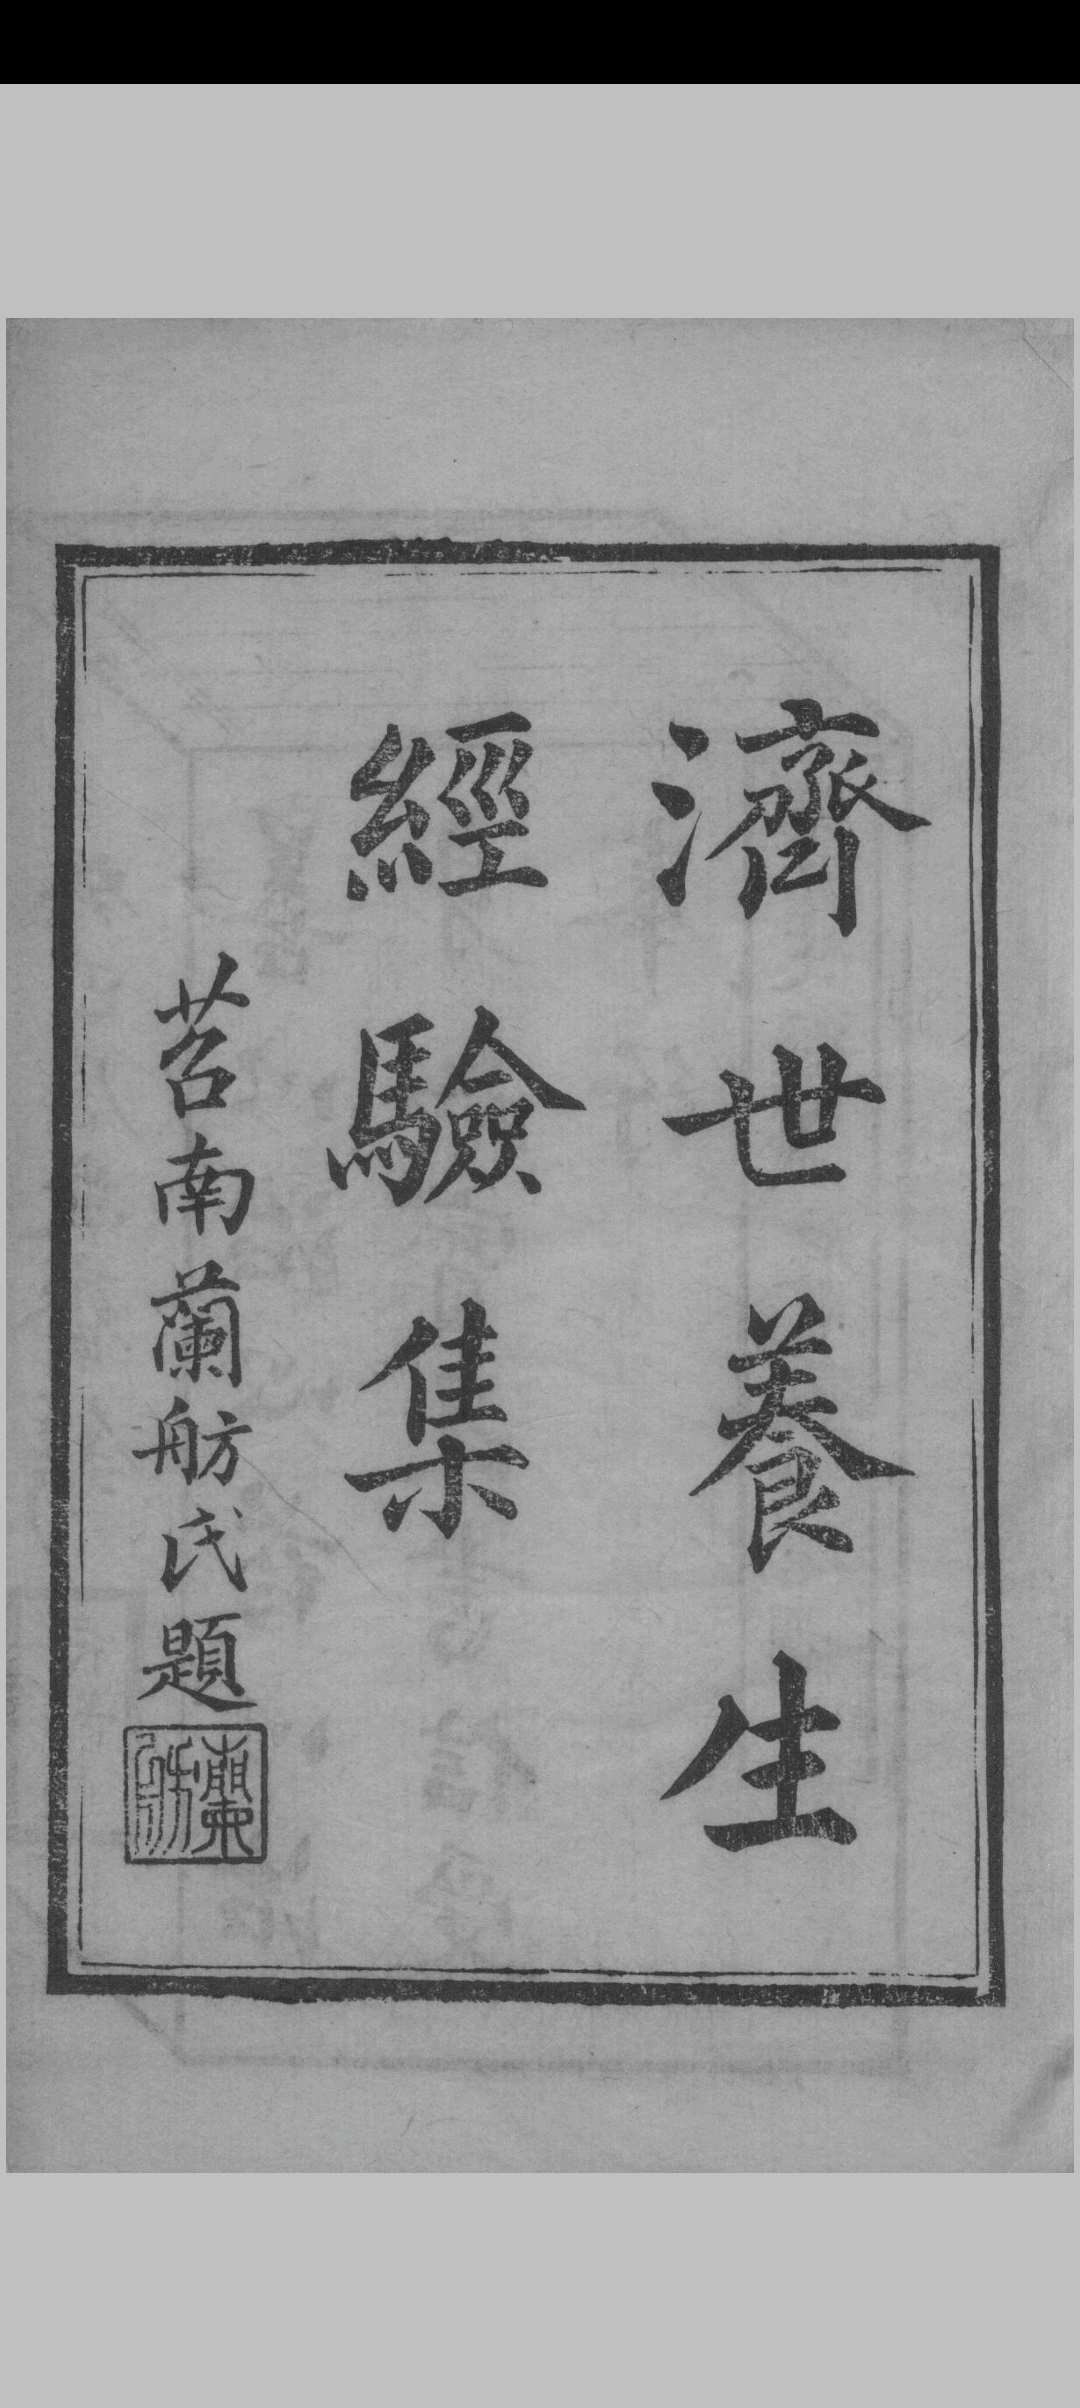 濟世養生
經驗集
苕南蘭舫氏題